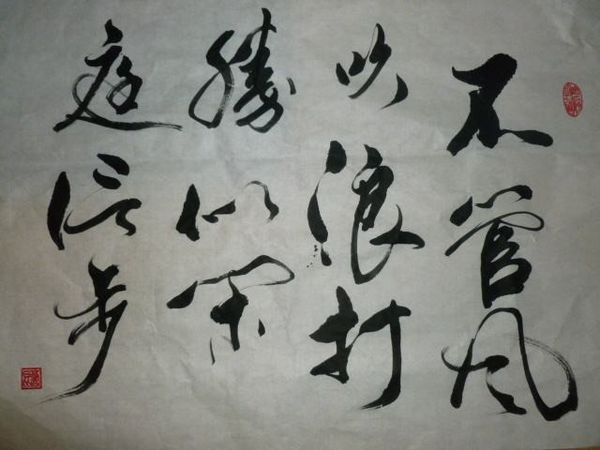 不管风
吹浪打
勝似闲
庭信步